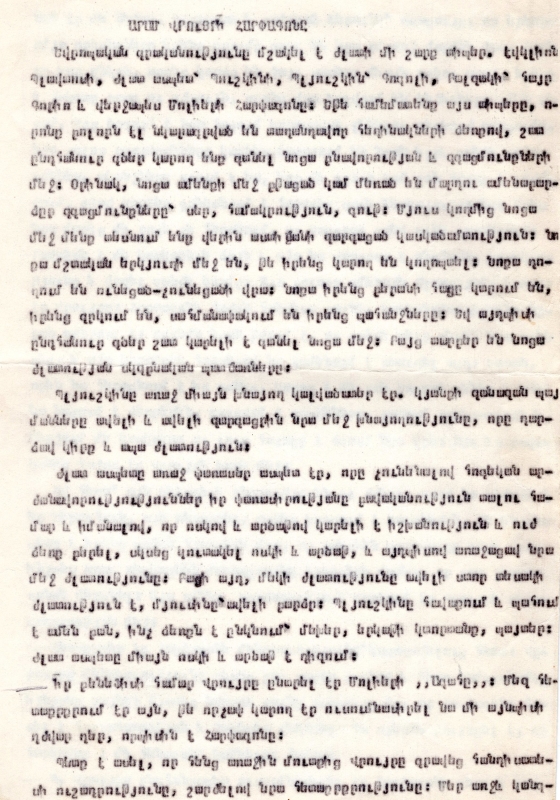 ԱՐԱՄ ՎՐՈՒՅՐԻ ՀԱՐՊԱԳՈՆԸ
Եվրոպական գրականությունը մշակել է ժլատի մի շարք տիպեր. էվկլիոն՝
Պլավտուսի, ժլատ ասպետ՝ Պուշկինի, Պլյուշկին՝ Գոգոլի, Բալզակի՝ Հայր
Գոբիո և վերջապես Մոլիերի Հարպագոնը: Եթե համեմատենք այս տիպերը, ո-
րոնք բոլորն էլ նկարագրված են տաղանդավոր հեղինակների ձեռքով, շատ
ընդհանուր գծեր կարող ենք գտնել նրանց բնավորության և զգացմունքների
մեջ: Օրինակ, նրանց ամենի մեջ բթացած կամ մեռած են մարդու ամենաբար-
ձըր զգացմունքները՝ սեր, համակրություն, գութ: Մյուս կողմից նրանց
մեջ մենք տեսնում ենք վերին աստիճանի զարգացած կասկածամտություն: Նո
քա մշտական երկյուղի մեջ են, թե իրենց կարող են կողոպտել: Նոքա դո-
ղում են ունեցած-չունեցածի վրա: Նոքա իրենց բերանի հացը կտրում են,
իրենց զրկում են, սահմանափակում են իրենց պահանջները: Եվ այդպիսի
ընդհանուր գծեր շատ կարելի է գտնել նրանց մեջ: Բայց տարբեր են նրանց
ժլատության սկզբնական պատճառները:
Պլյուշկինը առաջ միայն խնայող կալվածատեր էր. կյանքի զանազան պայ
մանները ավելի և ավելի զարգացրին նրա մեջ խնայողությունը, որը դար-
ձավ կիրք և ապա ժլատություն:
Ժլատ ասպետը առաջ փառասեր ասպետ էր, որը չունենալով հոգեկան ար-
ժանավորություններ իր փառասիրությանը բավականություն տալու հա-
մար և իմանալով, որ ոսկով և արծաթով կարելի է իշխանություն և ուժ
ձեռք բերել, սկսեց կուտակել ոսկի և արծաթ, և այդպիսով առաջացավ նրա
մեջ ժլատությունը: Բացի այդ, մեկի ժլատությունը ավելի ստոր տեսակի
ժլատություն է, մյուսինը՝ ավելի բարձր: Պլյուշկինը հավաքում և պահում
է ամեն բան, ինչ ձեռքն է ընկնում՝ մեխեր, երկաթի կտորտանք, պայտեր:
Ժլատ ասպետը միայն ոսկի և արծաթ է դիզում:
Իր բենեֆիսի համար Վրույրը ընտրել էր Մոլիերի ,,Ագահը,,: Մեզ հե-
տաքրքրում էր այն, թե որչափ կարող էր ուսումնասիրել նա մի այնպիսի
դժվար դեր, որպիսին է Հարպագոնը:
Պետք է ասել, որ հենց առաջին մուտքից Վրույրը գրավեց հանդիսատե-
սի ուշադրությունը, շարժելով նրա հետաքրքրությունը: Մեր առջև կանգ-